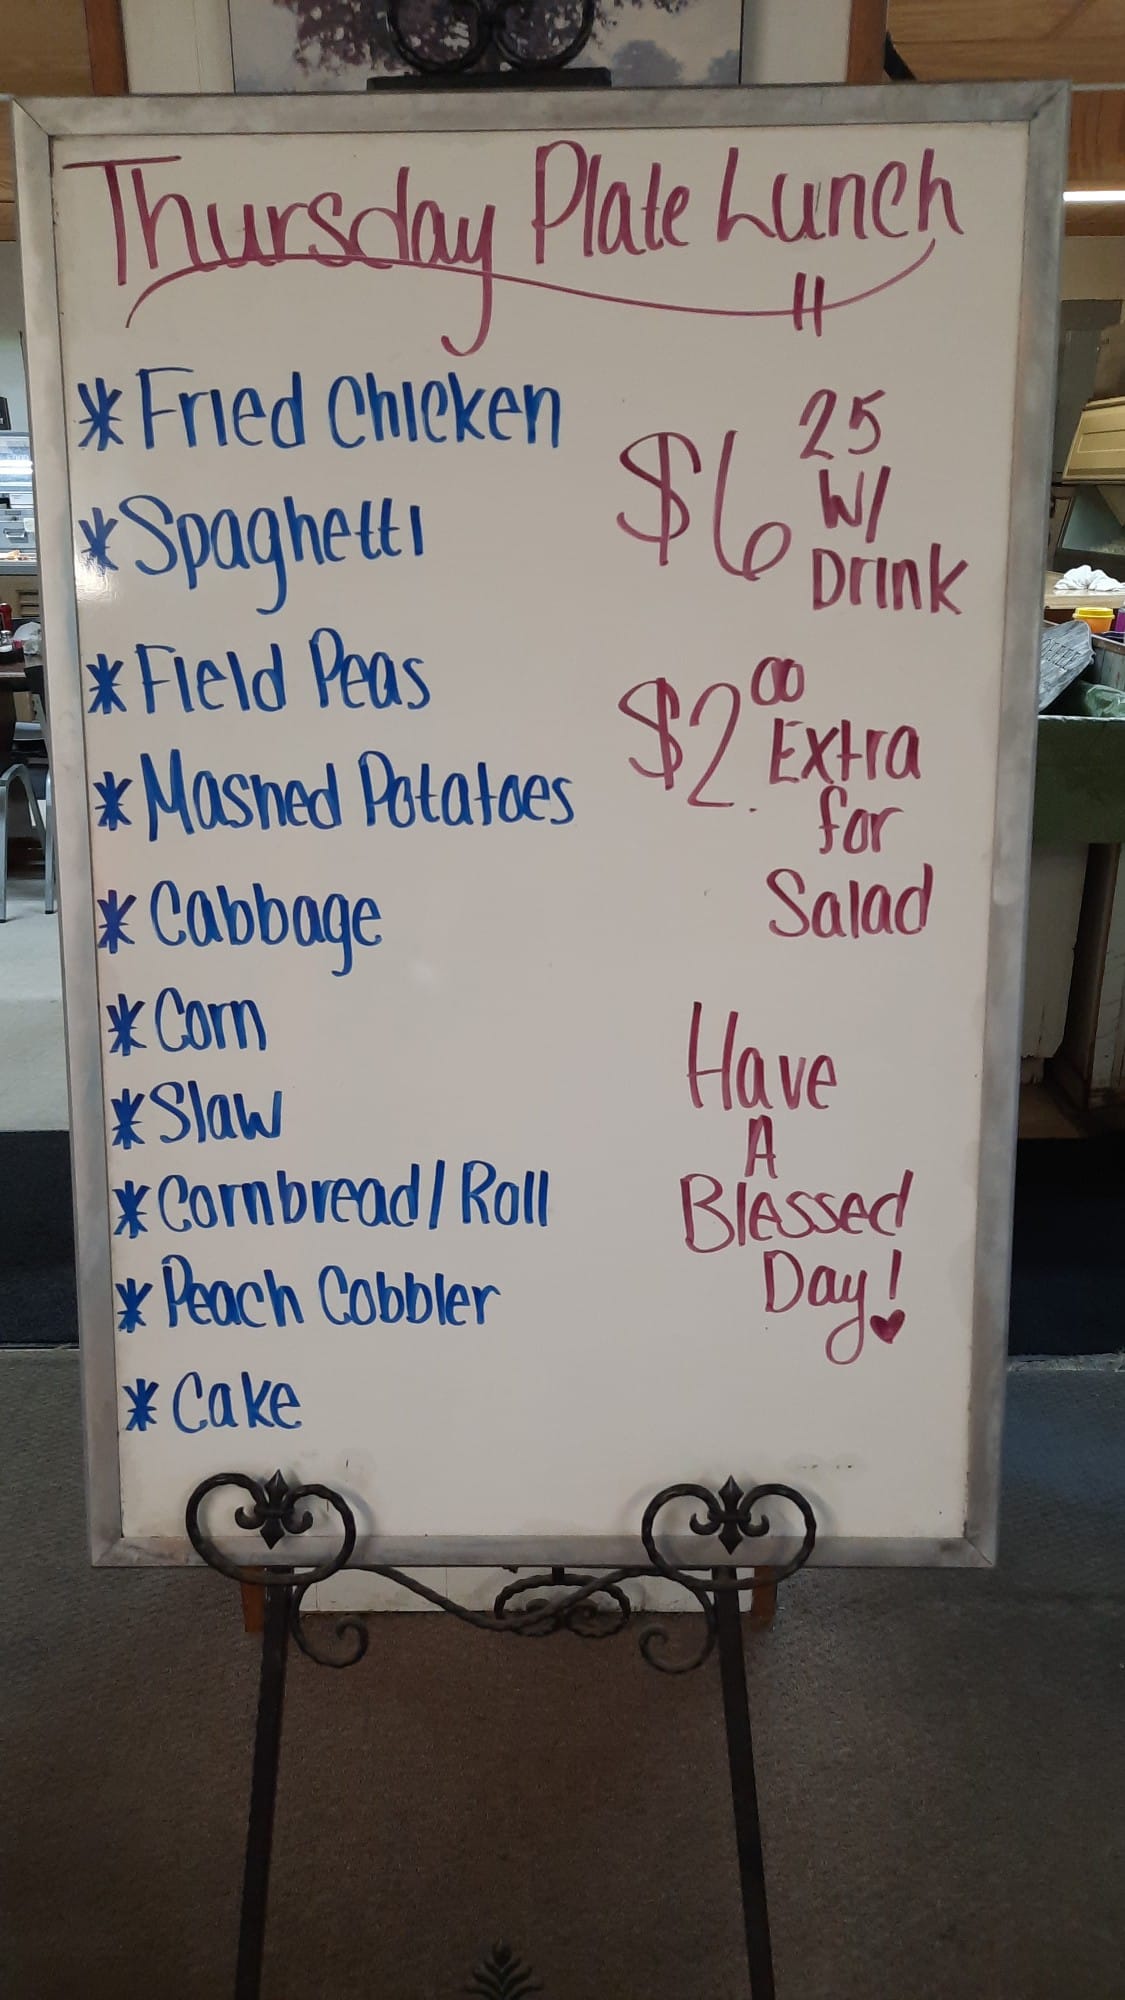 Thursday Plate Lunch
* Fried Chicken
* Spaghetti
* Field Peas
* Mashed Potatoes
* Cabbage
* Corn
* Slaw
* Cornbread/Roll
* Peach Cobbler
* Cake
$6 25
W/
Drink
$2.00
Extra
for
Salad
Have
A
Blessed
Day!